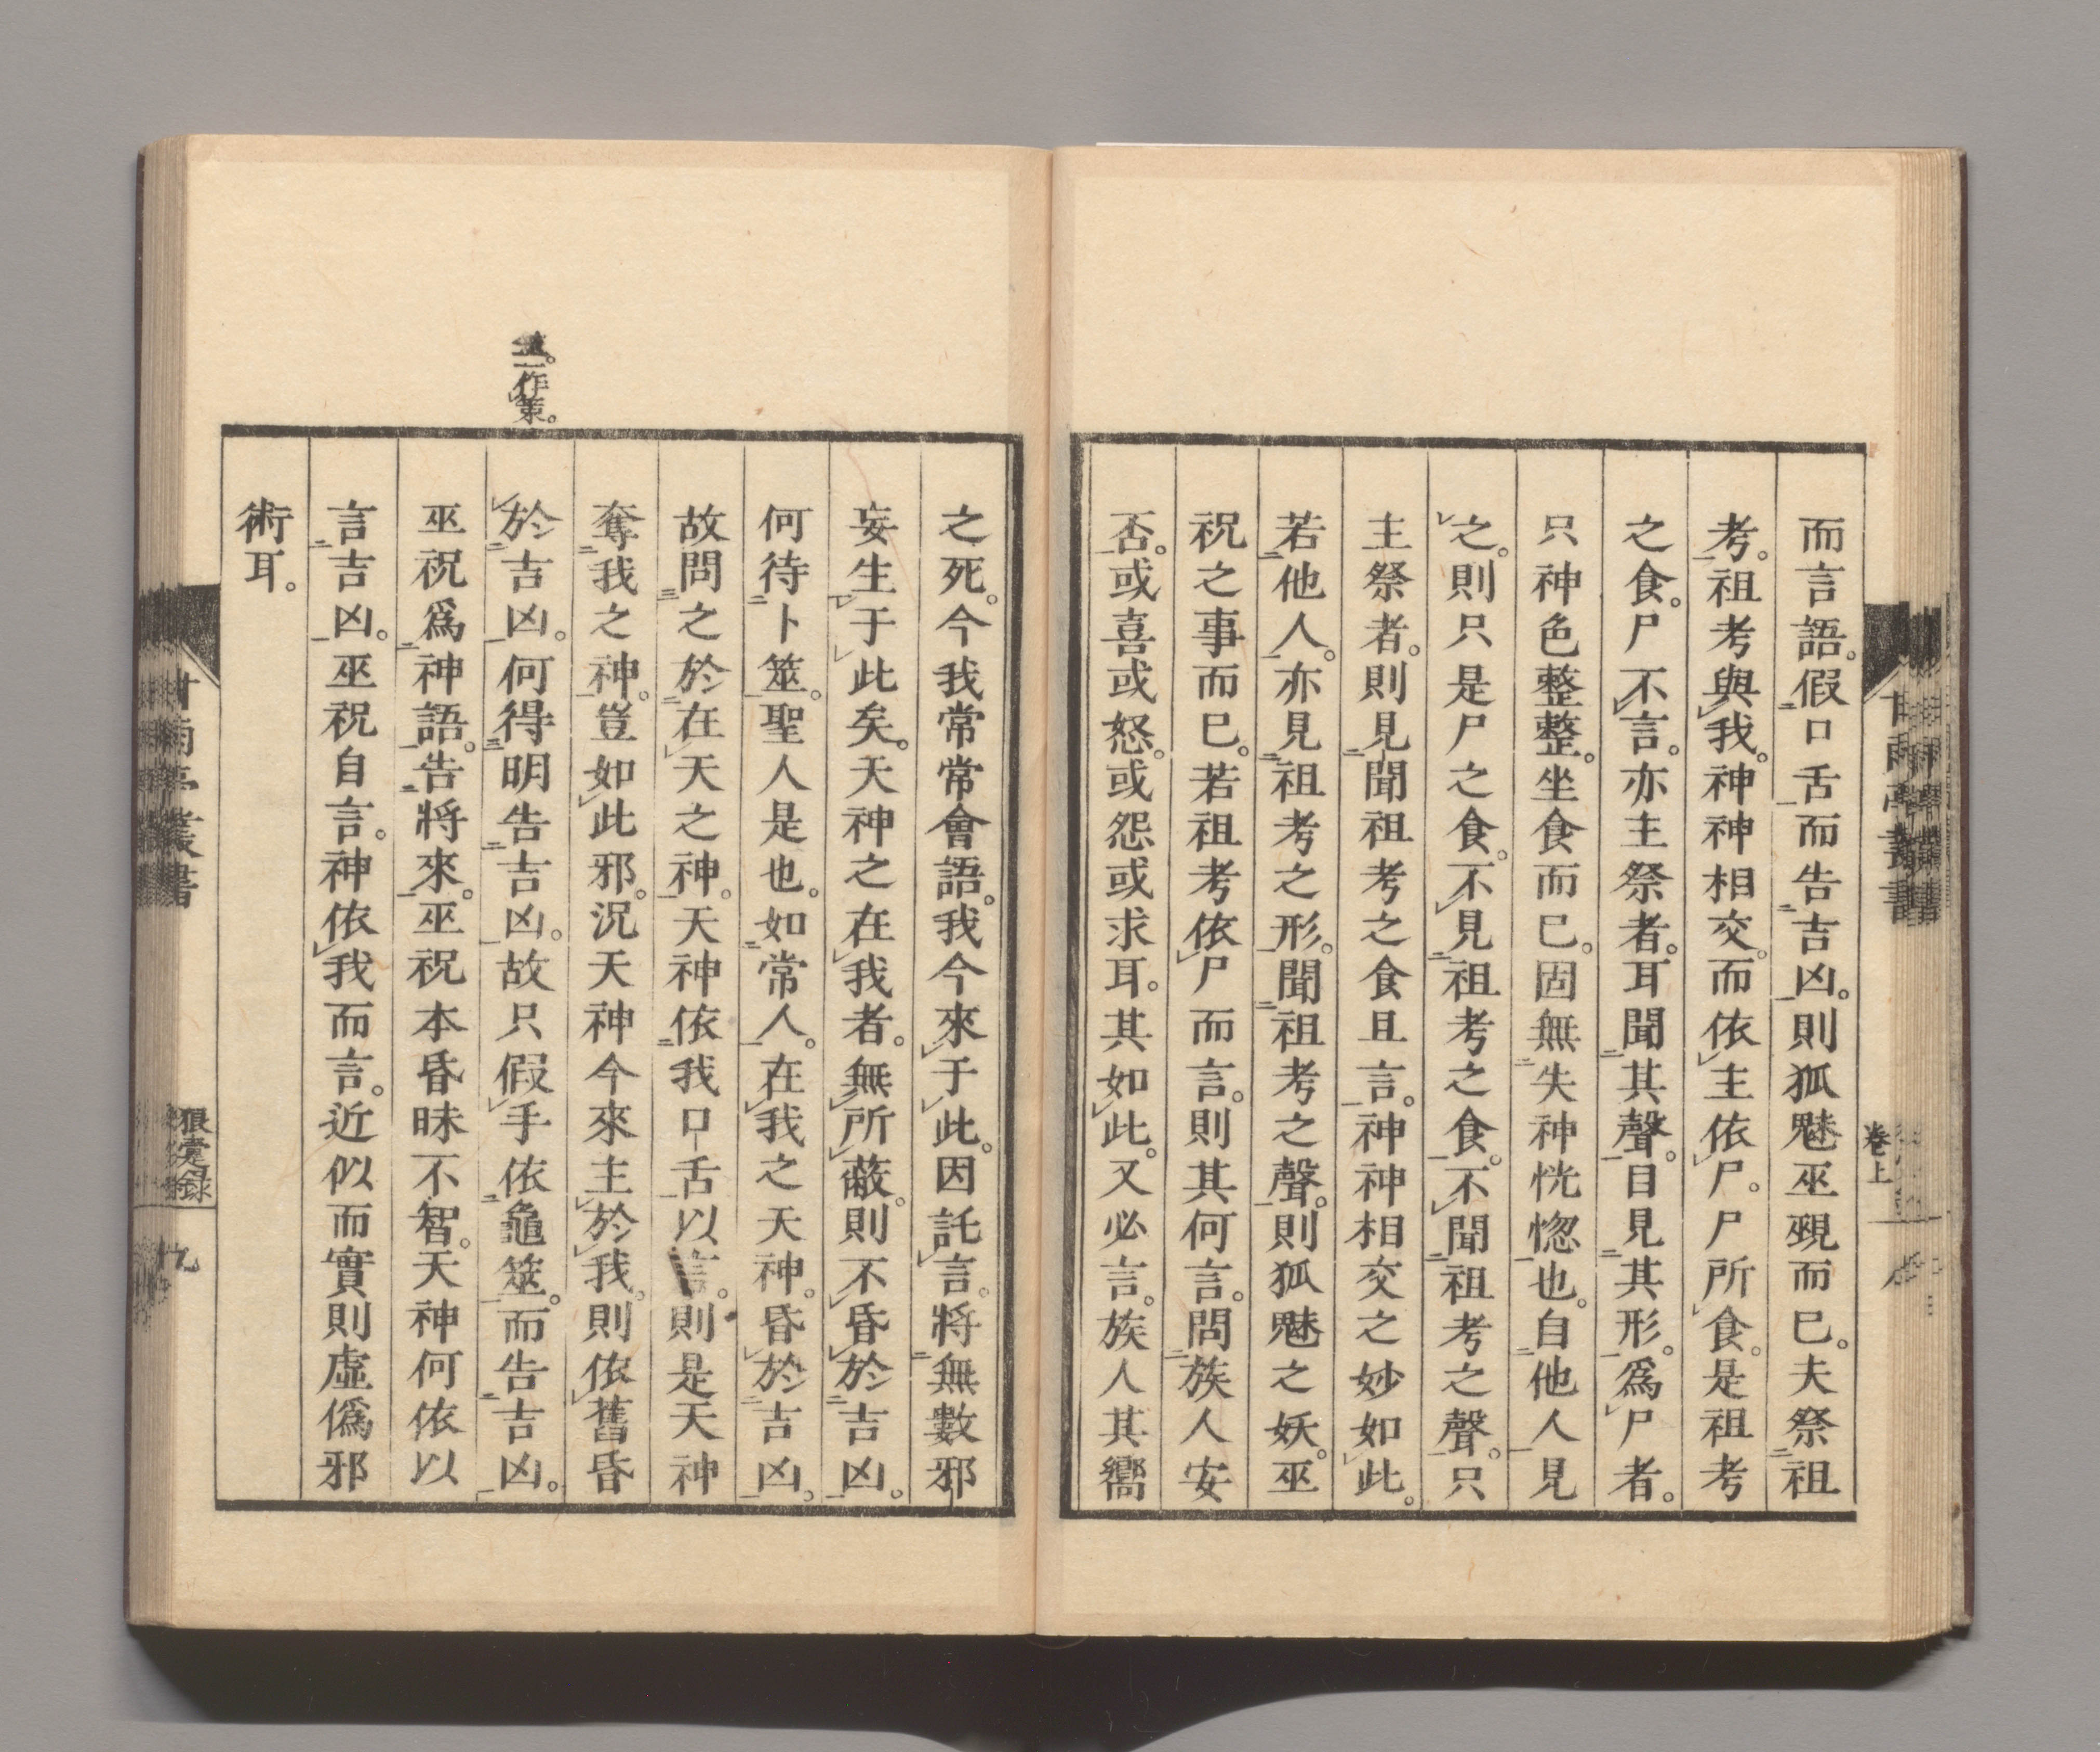 而言語。假口舌而告吉凶。則狐魅巫覡而已。夫祭祖
考。祖考與我。神神相交。而依主依尸。尸所食。是祖考
之食。尸不言。亦主祭者。耳聞其聲。目見其形。爲尸者。
只神色整整。坐食而已。固無失神恍惚也。自他人見
之。則只是尸之食。不見祖考之食。不聞祖考之聲。只
主祭者。則見聞祖考之食且言。神神相交之妙如此。
若他人。亦見祖考之形。聞祖考之聲。則狐魅之妖。巫
祝之事而已。若祖考依尸而言。則其何言。問族人安
否。或喜或怒。或怨或求耳。其如此。又必言。族人其嚮
卷上
之死。今我常常會語。我今來于此。因託言。將無數邪
妄生于此矣。天神之在我者。無所蔽。則不昏於吉凶。
何待卜筮。聖人是也。如常人。在我之天神。昏於吉凶。
故問之於在天之神。天神依我口舌以言。則是天神
奪我之神。豈如此邪。況天神今來主於我。則依舊昏
於吉凶。何得明告吉凶。故只假手依龜筮。而告吉凶。
巫祝爲神語。告將來。巫祝本昏昧不智。天神何依以
言吉凶。巫祝自言。神依我而言。近似而實則虛僞邪
術耳。
一作策。
甘雨亭叢書
狼疐録
九